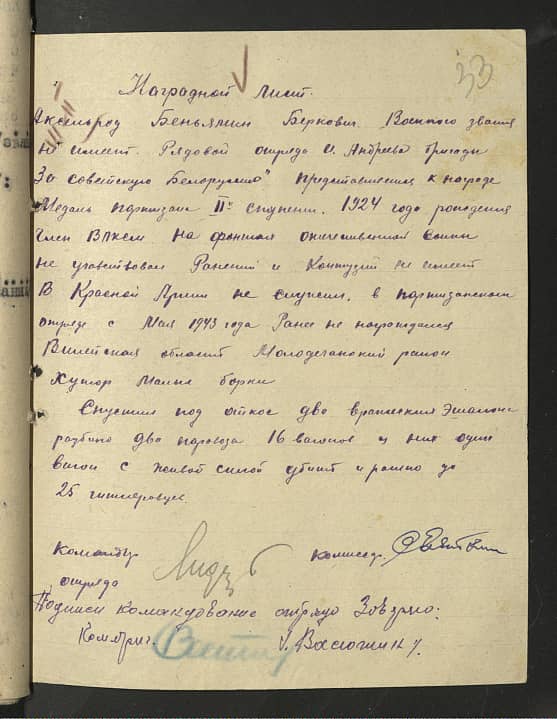 33
Наградной лист.
Аксельрод Беньямин Беркович. Военного звания
не имеет. Рядовой отряда О. Андреева бригады
За советскую Белоруссию" представляется к награде
Медаль партизана II й ступени. 1924 года рождения
член ВЛКСМ на фронтах отечественной войны
не участвовал Ранений и Контузий не имеет
В Красной Армии не служил. в партизанском
отряде с Мая 1943 года Ранее не награждался
Вилейская область Молодечанский район
Хутор Малые борки
Спустил под откос два вражеских Эшалона
разбито два паровоза 16 вагонов из них один
вагон с живой силой убито и ранено до
25 гитлеровцев.
Командир
отряда
комиссар
Подписи командование отряда Зоверяю:
Комбриг
Васюжин